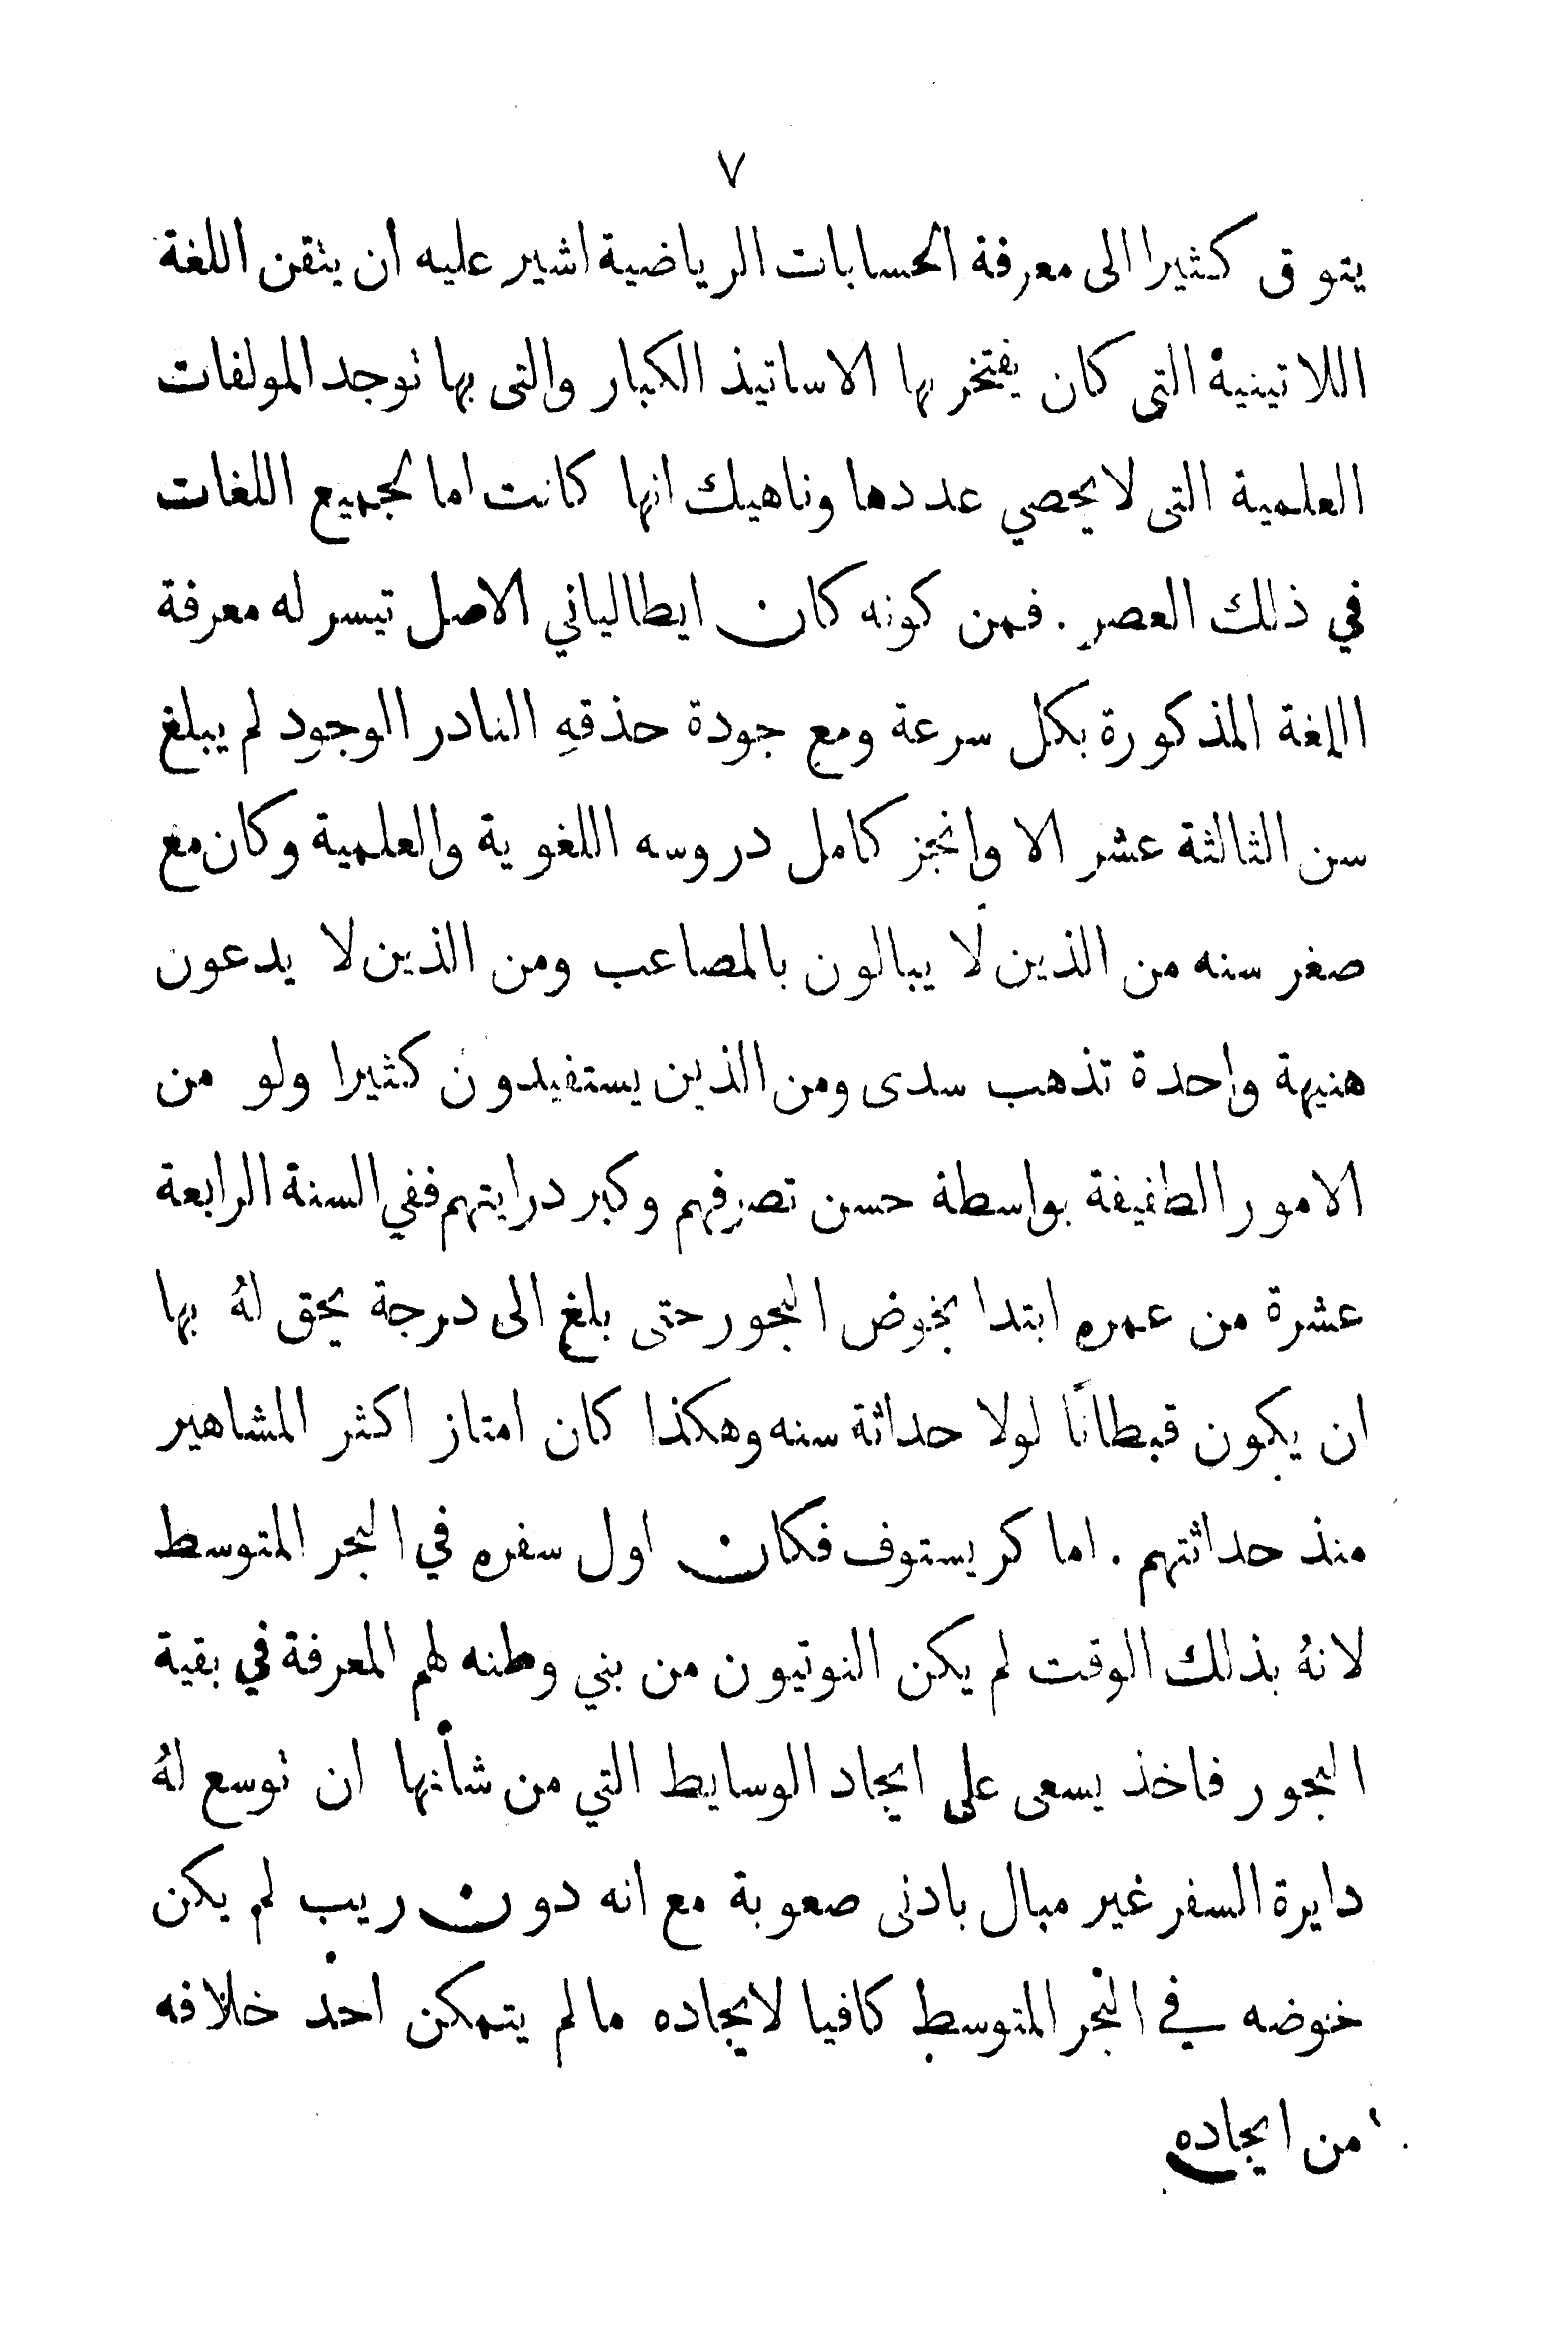 ٧
يتوق كثيرا الى معرفة الحسابات الرياضية اشير عليه ان يتقن اللغة
اللاتينية التى كان يفتخر بها الاساتيذ الكبار والتى بها توجد المولفات
العلمية التى لا يحصي عددها وناهيك انها كانت اما لجميع اللغات
في ذلك العصر . فمن كونه كان ايطالياني الاصل تيسر له معرفة
اللغة المذكورة بكل سرعة ومع جودة حذقهِ النادر الوجود لم يبلغ
سن الثالثة عشر الا وانجز كامل دروسه اللغوية والعلمية وكان مع
صغر سنه من الذين لا يبالون بالمصاعب ومن الذين لا يدعون
هنيهة واحدة تذهب سدى ومن الذين يستفيدون كثيرا ولو من
الامور الطفيفة بواسطة حسن تصرفهم وكبر درايتهم ففي السنة الرابعة
عشرة من عمره ابتدا بخوض البحور حتى بلغ الى درجة يحق لهُ بها
ان يكون قبطانًا لولا حداثة سنه وهكذا كان امتاز اكثر المشاهير
منذ حداثتهم . اما كريستوف فكان اول سفره في البحر المتوسط
لانهُ بذلك الوقت لم يكن النوتيون من بني وطنه لهم المعرفة في بقية
البحور فاخذ يسعى على ايجاد الوسايط التي من شأنها ان توسع لهُ
دايرة السفر غير مبال بادنى صعوبة مع انه دون ريب لم يكن
خوضه في البحر المتوسط كافيا لايجاده ما لم يتمكن احد خلافه
من ايجاده